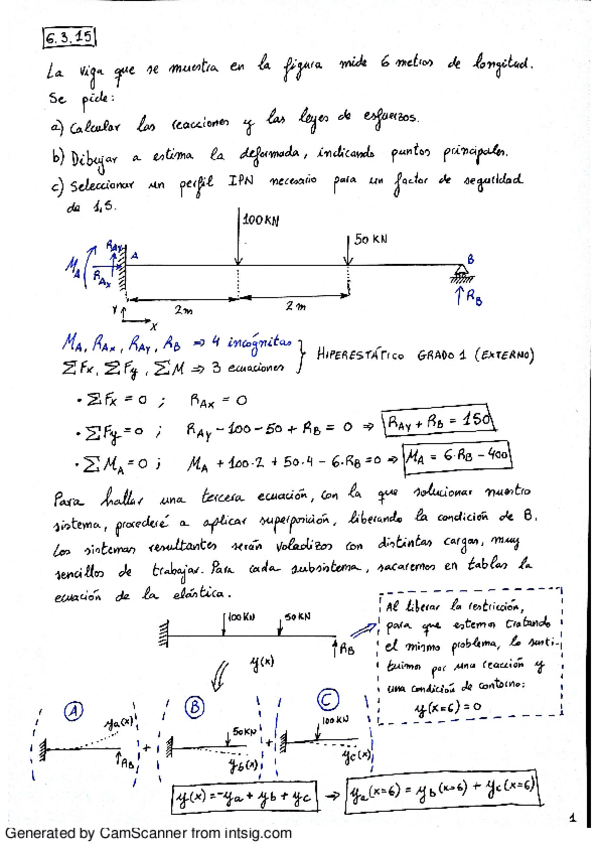 6.3.15
La viga que se muestra en la figura mide 6 metros de longitud.
Se pide:
a) Calcular las reacciones y las leyes de esfuerzos.
b) Dibujar a estima la deformada, indicando puntos principales.
c) Seleccionar un perfil IPN necesario para un factor de seguridad
de 1,5.
100 KN
50 KN
M_A R_Ay R_Ax A
B
R_B
2m 2m
Y X
M_A, R_Ax, R_Ay, R_B ⇒ 4 incógnitas
ΣFx, ΣFy, ΣM ⇒ 3 ecuaciones
HIPERESTÁTICO GRADO 1 (EXTERNO)
· ΣFx = 0 ; R_Ax = 0
· ΣFy = 0 ; R_Ay - 100 - 50 + R_B = 0 ⇒ R_Ay + R_B = 150
· ΣM_A = 0 ; M_A + 100·2 + 50·4 - 6·R_B = 0 ⇒ M_A = 6·R_B - 400
Para hallar una tercera ecuación, con la que solucionar nuestro
sistema, procederé a aplicar superposición, liberando la condición de B.
Los sistemas resultantes serán voladizos con distintas cargas, muy
sencillos de trabajar. Para cada subsistema, sacaremos en tablas la
ecuación de la elástica.
100 KN 50 KN
R_B
y(x)
Al liberar la restricción,
para que estemos tratando
el mismo problema, lo susti-
tuimos por una reacción y
una condición de contorno:
y(x=6) = 0
A B C
ya(x) R_B + 50KN yb(x) + 100KN yc(x)
y(x) = -ya + yb + yc → ya(x=6) = yb(x=6) + yc(x=6)
1
Generated by CamScanner from intsig.com